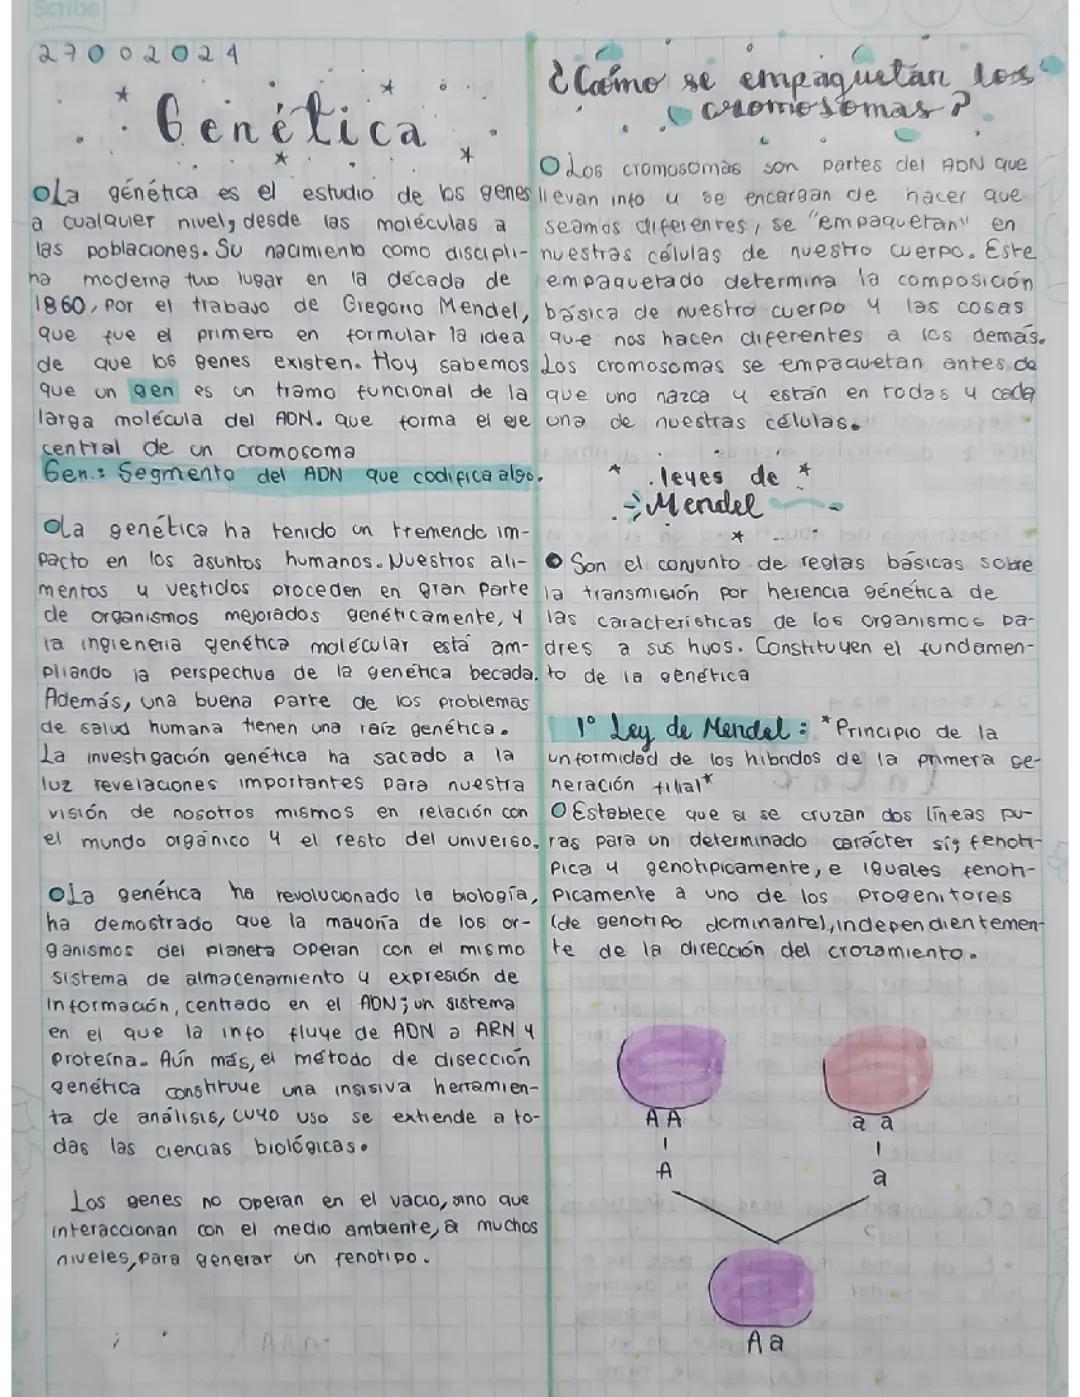 Scribe
27002024
Genética
La génética es el estudio de los genes
a cualquier nivel, desde las moléculas a
las poblaciones. Su nacimiento como discipli-
na moderna tuvo lugar en la década de
1860, Por el trabajo de Gregorio Mendel,
que fue el primero en formular la idea
de que los genes existen. Hoy sabemos
que un gen es un tramo funcional de la
larga molécula del ADN. que forma el eje
central de un cromosoma
Gen.: Segmento del ADN que codifica algo.
La genética ha tenido un tremendo im-
pacto en los asuntos humanos. Nuestros ali-
mentos y vestidos proceden en gran Parte
de organismos mejorados genéticamente, y
la ingieneria genética molécular está am-
pliando la perspectiva de la genética becada.
Además, una buena parte de los problemas
de salud humana tienen una raíz genética.
La investigación genética ha sacado a la
luz revelaciones importantes para nuestra
visión de nosotros mismos en relación con
el mundo orgánico y el resto del universo.
La genética ha revolucionado la biología,
ha demostrado que la mayoría de los or-
ganismos del planeta operan con el mismo
sistema de almacenamiento y expresión de
información, centrado en el ADN; un sistema
en el que la info fluye de ADN a ARN y
proteína. Aún más, el método de disección
genética constituye una insisiva herramien-
ta de análisis, cuyo uso se extiende a to-
das las ciencias biológicas.
Los genes no operan en el vacio, sino que
interaccionan con el medio ambiente, a muchos
niveles, para generar un fenotipo.
¿Cómo se empaquetan los
cromosomas?
Los cromosomas son partes del ADN que
llevan info y se encargan de hacer que
seamos diferentes, se "empaquetan" en
nuestras células de nuestro cuerpo. Este
empaquetado determina la composición
básica de nuestro cuerpo y las cosas
que nos hacen diferentes a los demás.
Los cromosomas se empaquetan antes de
que uno nazca y están en todas y cada
una de nuestras células.
leyes de
Mendel
Son el conjunto de reglas básicas sobre
la transmisión por herencia génética de
las características de los organismos pa-
dres a sus hijos. Constituyen el fundamen-
to de la genética
1° Ley de Mendel: *Principio de la
uniformidad de los hibridos de la primera ge-
neración filial*
Establece que si se cruzan dos líneas pu-
ras para un determinado carácter sig fenoti-
pica y genotipicamente, e iguales fenoti-
picamente a uno de los progenitores
(de genotipo dominante), independientemen-
te de la dirección del cruzamiento.
AA aa
A a
Aa